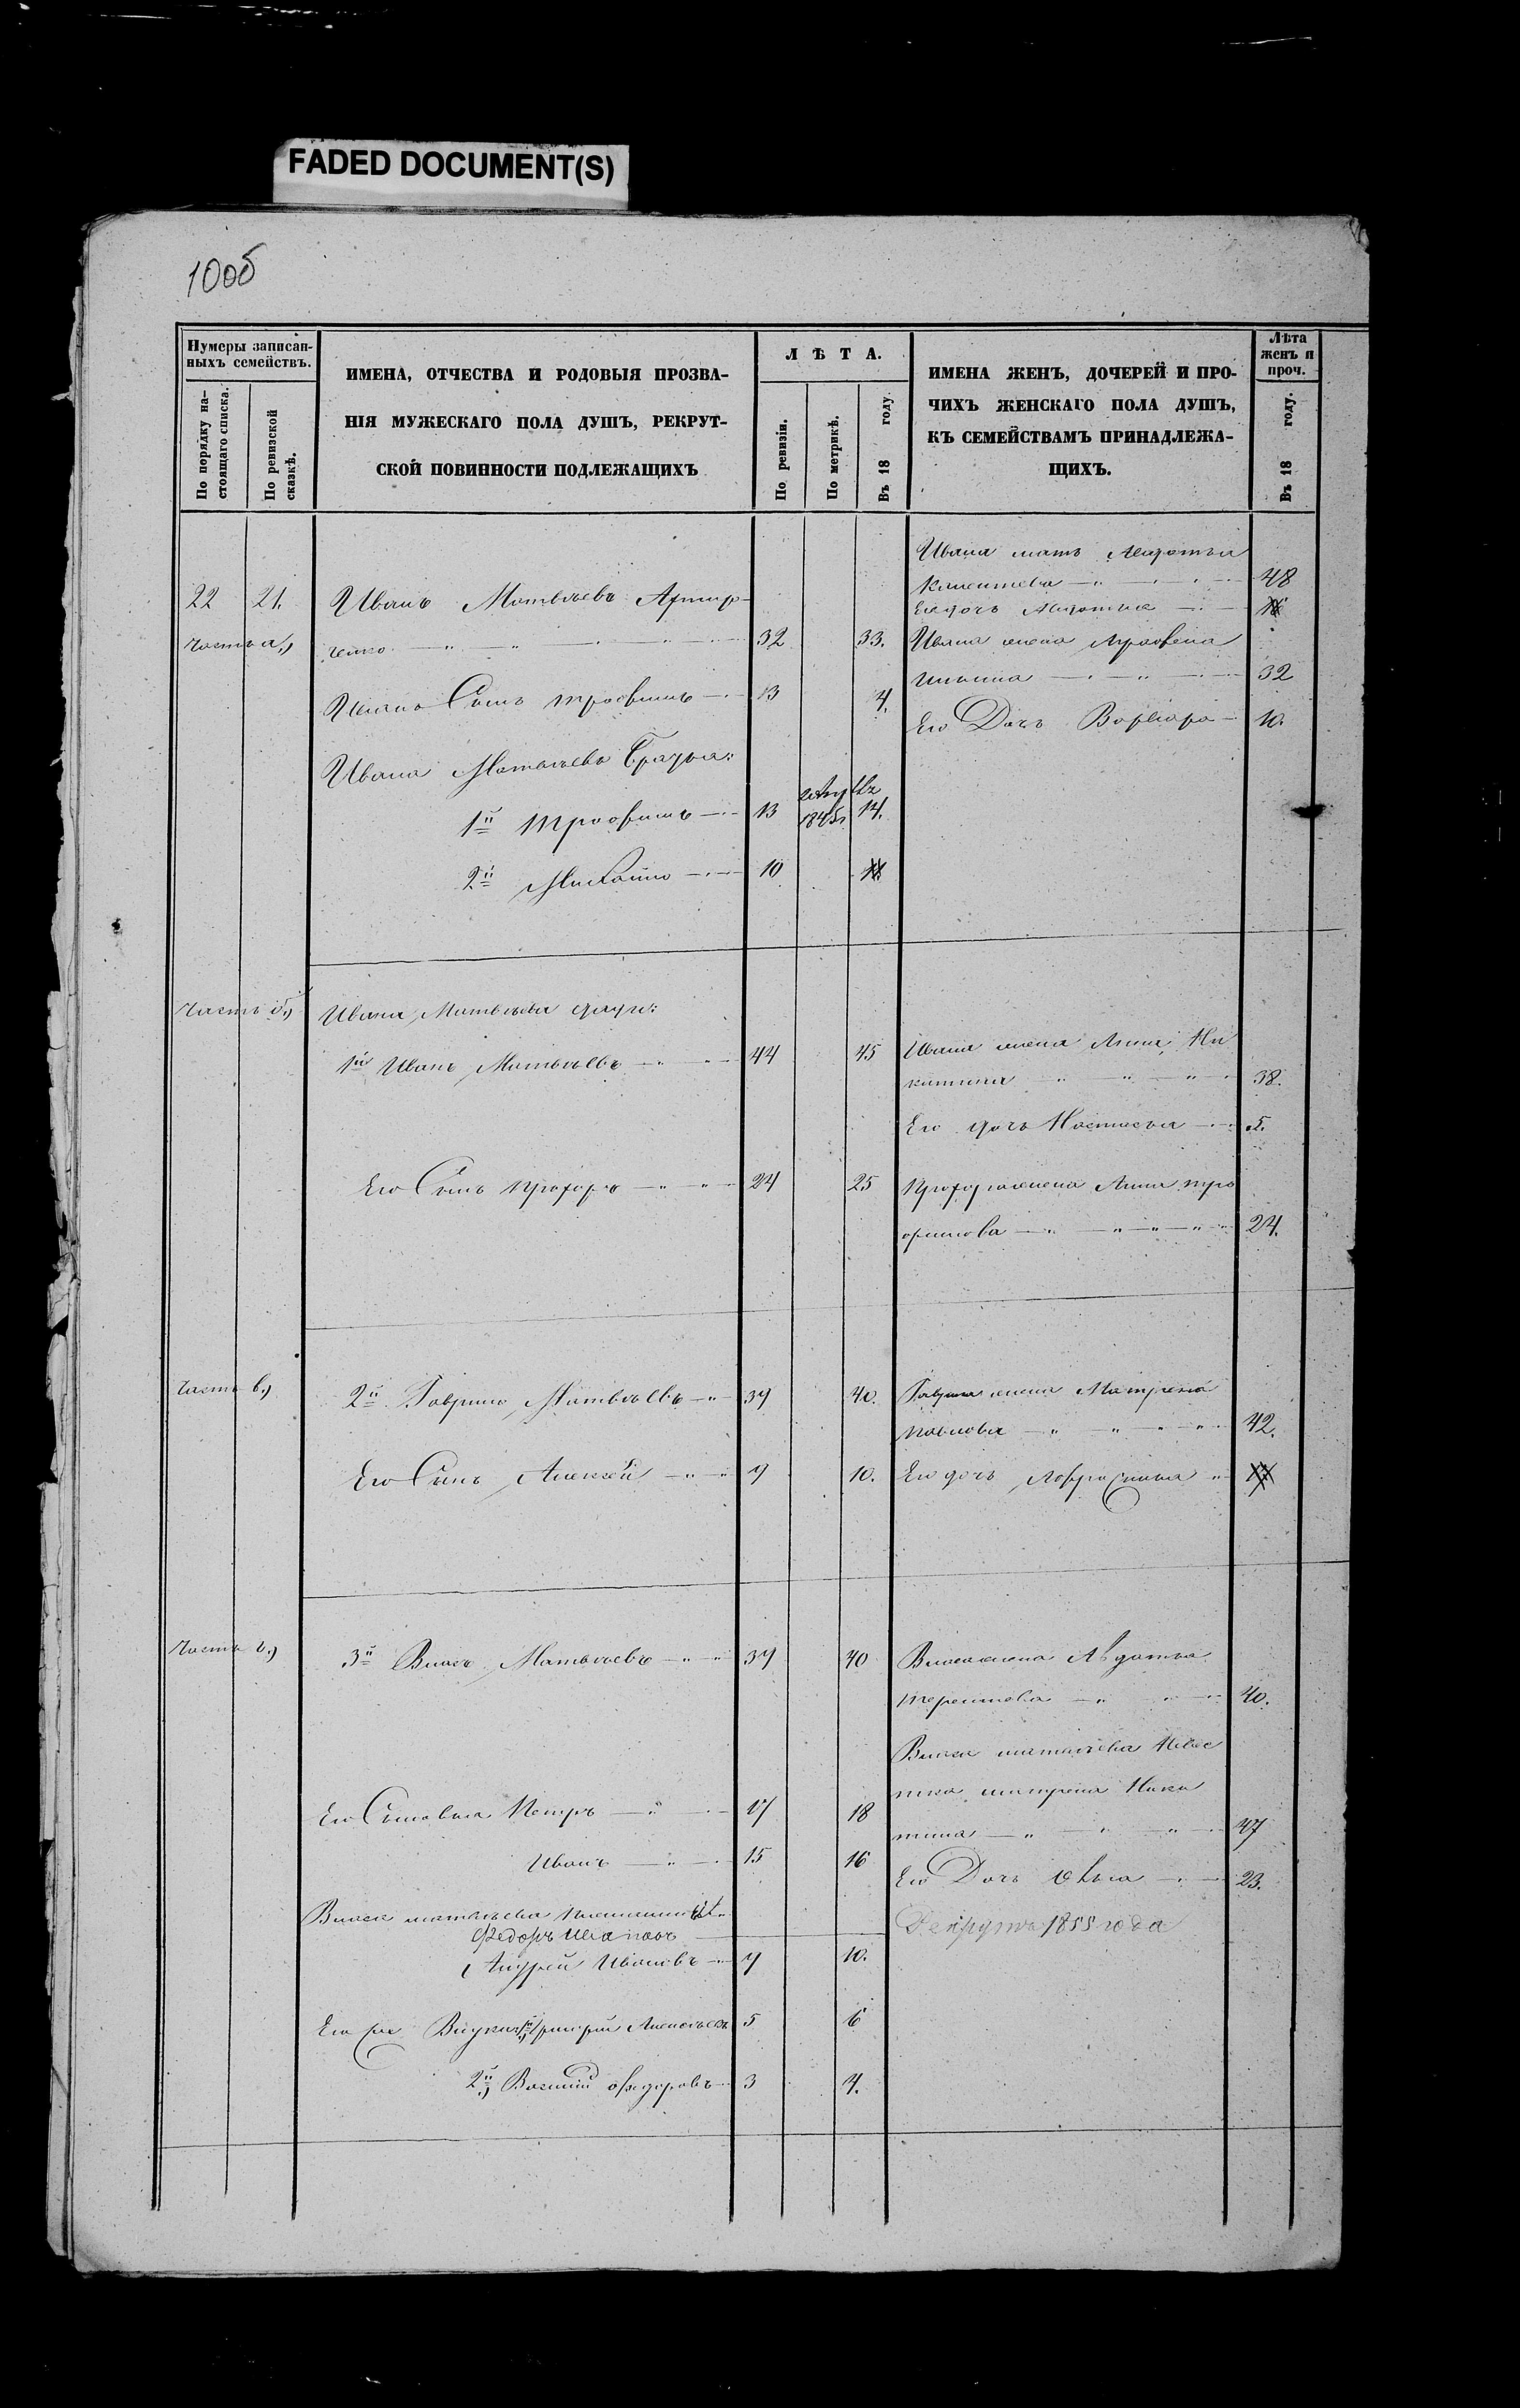 FADED DOCUMENT(S)
100б
Нумеры записан-
ныхъ семействъ.
По порядку на-
стоящаго списка.
По ревизской
сказкѣ.
ИМЕНА, ОТЧЕСТВА И РОДОВЫЯ ПРОЗВА-
НІЯ МУЖЕСКАГО ПОЛА ДУШЪ, РЕКРУТ-
СКОЙ ПОВИННОСТИ ПОДЛЕЖАЩИХЪ
ЛѢТА.
По ревизіи.
По метрикѣ.
Въ 18 году
ИМЕНА ЖЕНЪ, ДОЧЕРЕЙ И ПРО-
ЧИХЪ ЖЕНСКАГО ПОЛА ДУШЪ,
КЪ СЕМЕЙСТВАМЪ ПРИНАДЛЕЖА-
ЩИХЪ.
Лѣта
женъ и
проч.
Въ 18 году.
Ивана мать
48
22 21. Иванъ Матвѣевъ
Ея дочь
часть а,) 32 33. Ивана жена
32
Ивана Сынъ Трофимъ 4.
Его Дочь Варвара 10.
Ивана Матвѣева Братья:
1й Трофимъ 13 1845 14.
2й Михайло 10
Часть б,) Ивана Матвѣева дяди:
1й Иванъ Матвѣевъ 44 45 Ивана жена Анна Ни
китина 38.
Его дочь Настасья 5.
Его Сынъ Прохоръ 24 25 Прохора жена Анна Тро
фимова 24.
Часть в,) 2й Гаврило Матвѣевъ 39 40. Гаврила жена Матрена
Павлова 42.
Его Сынъ Алексѣй 9 10. Его дочь
Часть г,) 3й Власъ Матвѣевъ 39 40 Власа жена Авдотья
Терентьева 40.
Власа Матвѣева Невѣс
тка Матрена Ники
Его Сыновья Петръ 17 18
тина 47
Иванъ 15 16
Его Дочь 23.
Власа Матвѣева
Федоръ Ивановъ
Рекрутъ 1855 года
Андрей Ивановъ 9 10.
Его же Внуки 1й Григорій 5 6
2й) Василій Федоровъ 3 4.